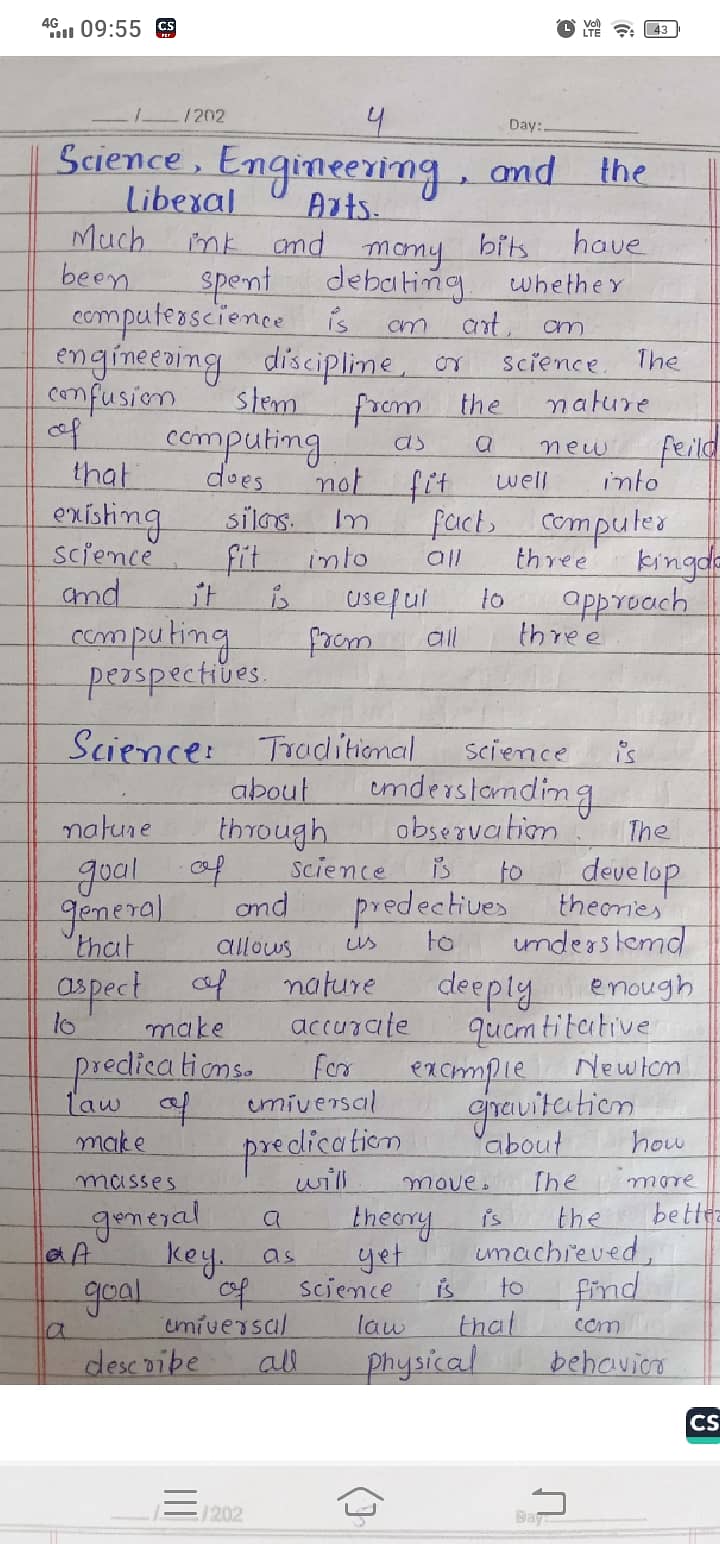 4G 09:55 CS
PDF
Vo)) LTE 43
__/__/202 4 Day:
Science, Engineering, and the
liberal Arts.
Much ink and many bits have
been spent debating whether
computerscience is an art, an
engineering discipline, or science. The
confusion stem from the nature
of computing as a new feild
that does not fit well into
existing silos. In fact, computer
science fit into all three kingdo
and it is useful to approach
computing from all three
perspectives.
Science: Traditional science is
about understanding
nature through observation. The
goal of science is to develop
general and predectives theories
that allows us to understand
aspect of nature deeply enough
to make accurate quantitative
predications. For example Newton
law of universal gravitation
make predication about how
masses will move. The more
general a theory is the better
A key. as yet unachieved,
goal of science is to find
a universal law that can
describe all physical behavior
CS
/ /202 5 Day: